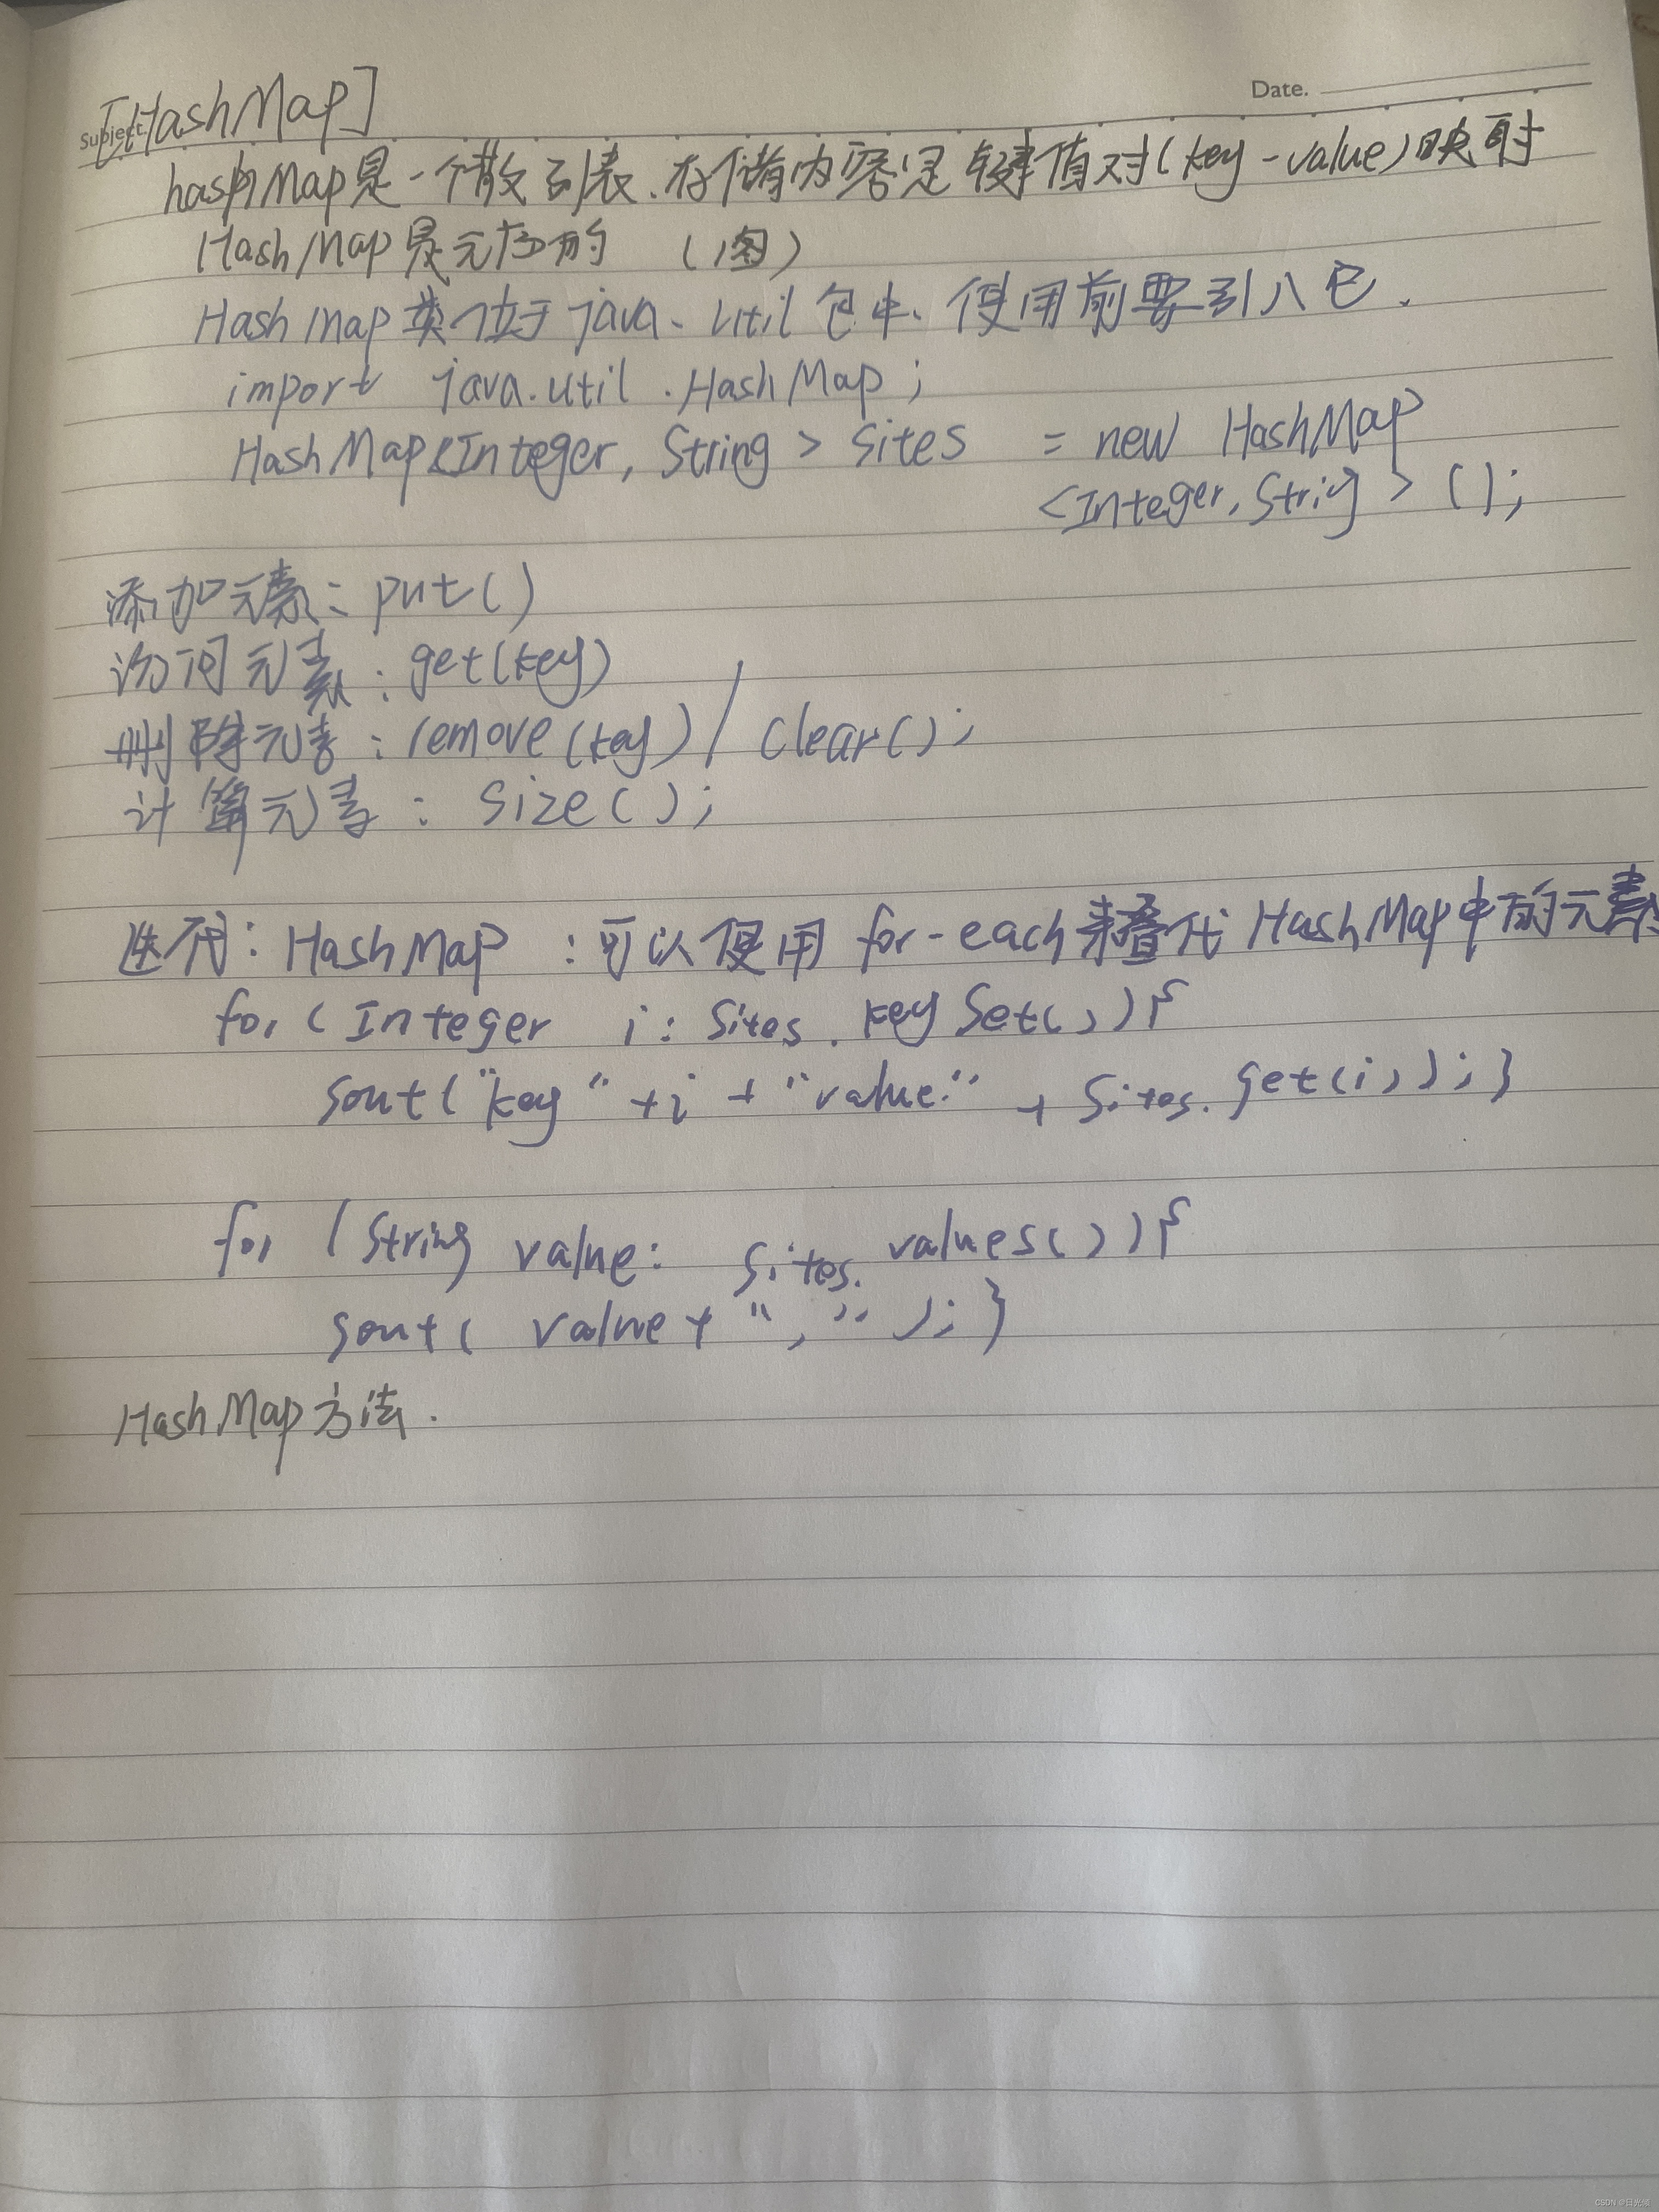 Date.
Subject:
[HashMap]
hashMap是一个散列表.存储内容是键值对(key-value)映射
HashMap是无序的 (图)
HashMap类位于java.util包中.使用前要引入它.
import java.util.HashMap;
HashMap<Integer, String> Sites = new HashMap
<Integer, String>();
添加元素: put()
访问元素: get(key)
删除元素: remove(key) / clear();
计算元素: size();
迭代: HashMap :可以使用 for-each来叠代HashMap中的元素
for (Integer i: Sites.keySet()){
sout("key" +i + "value:" + Sites.get(i));}
for (String value: Sites.values()){
sout( value+ "," );}
HashMap方法.